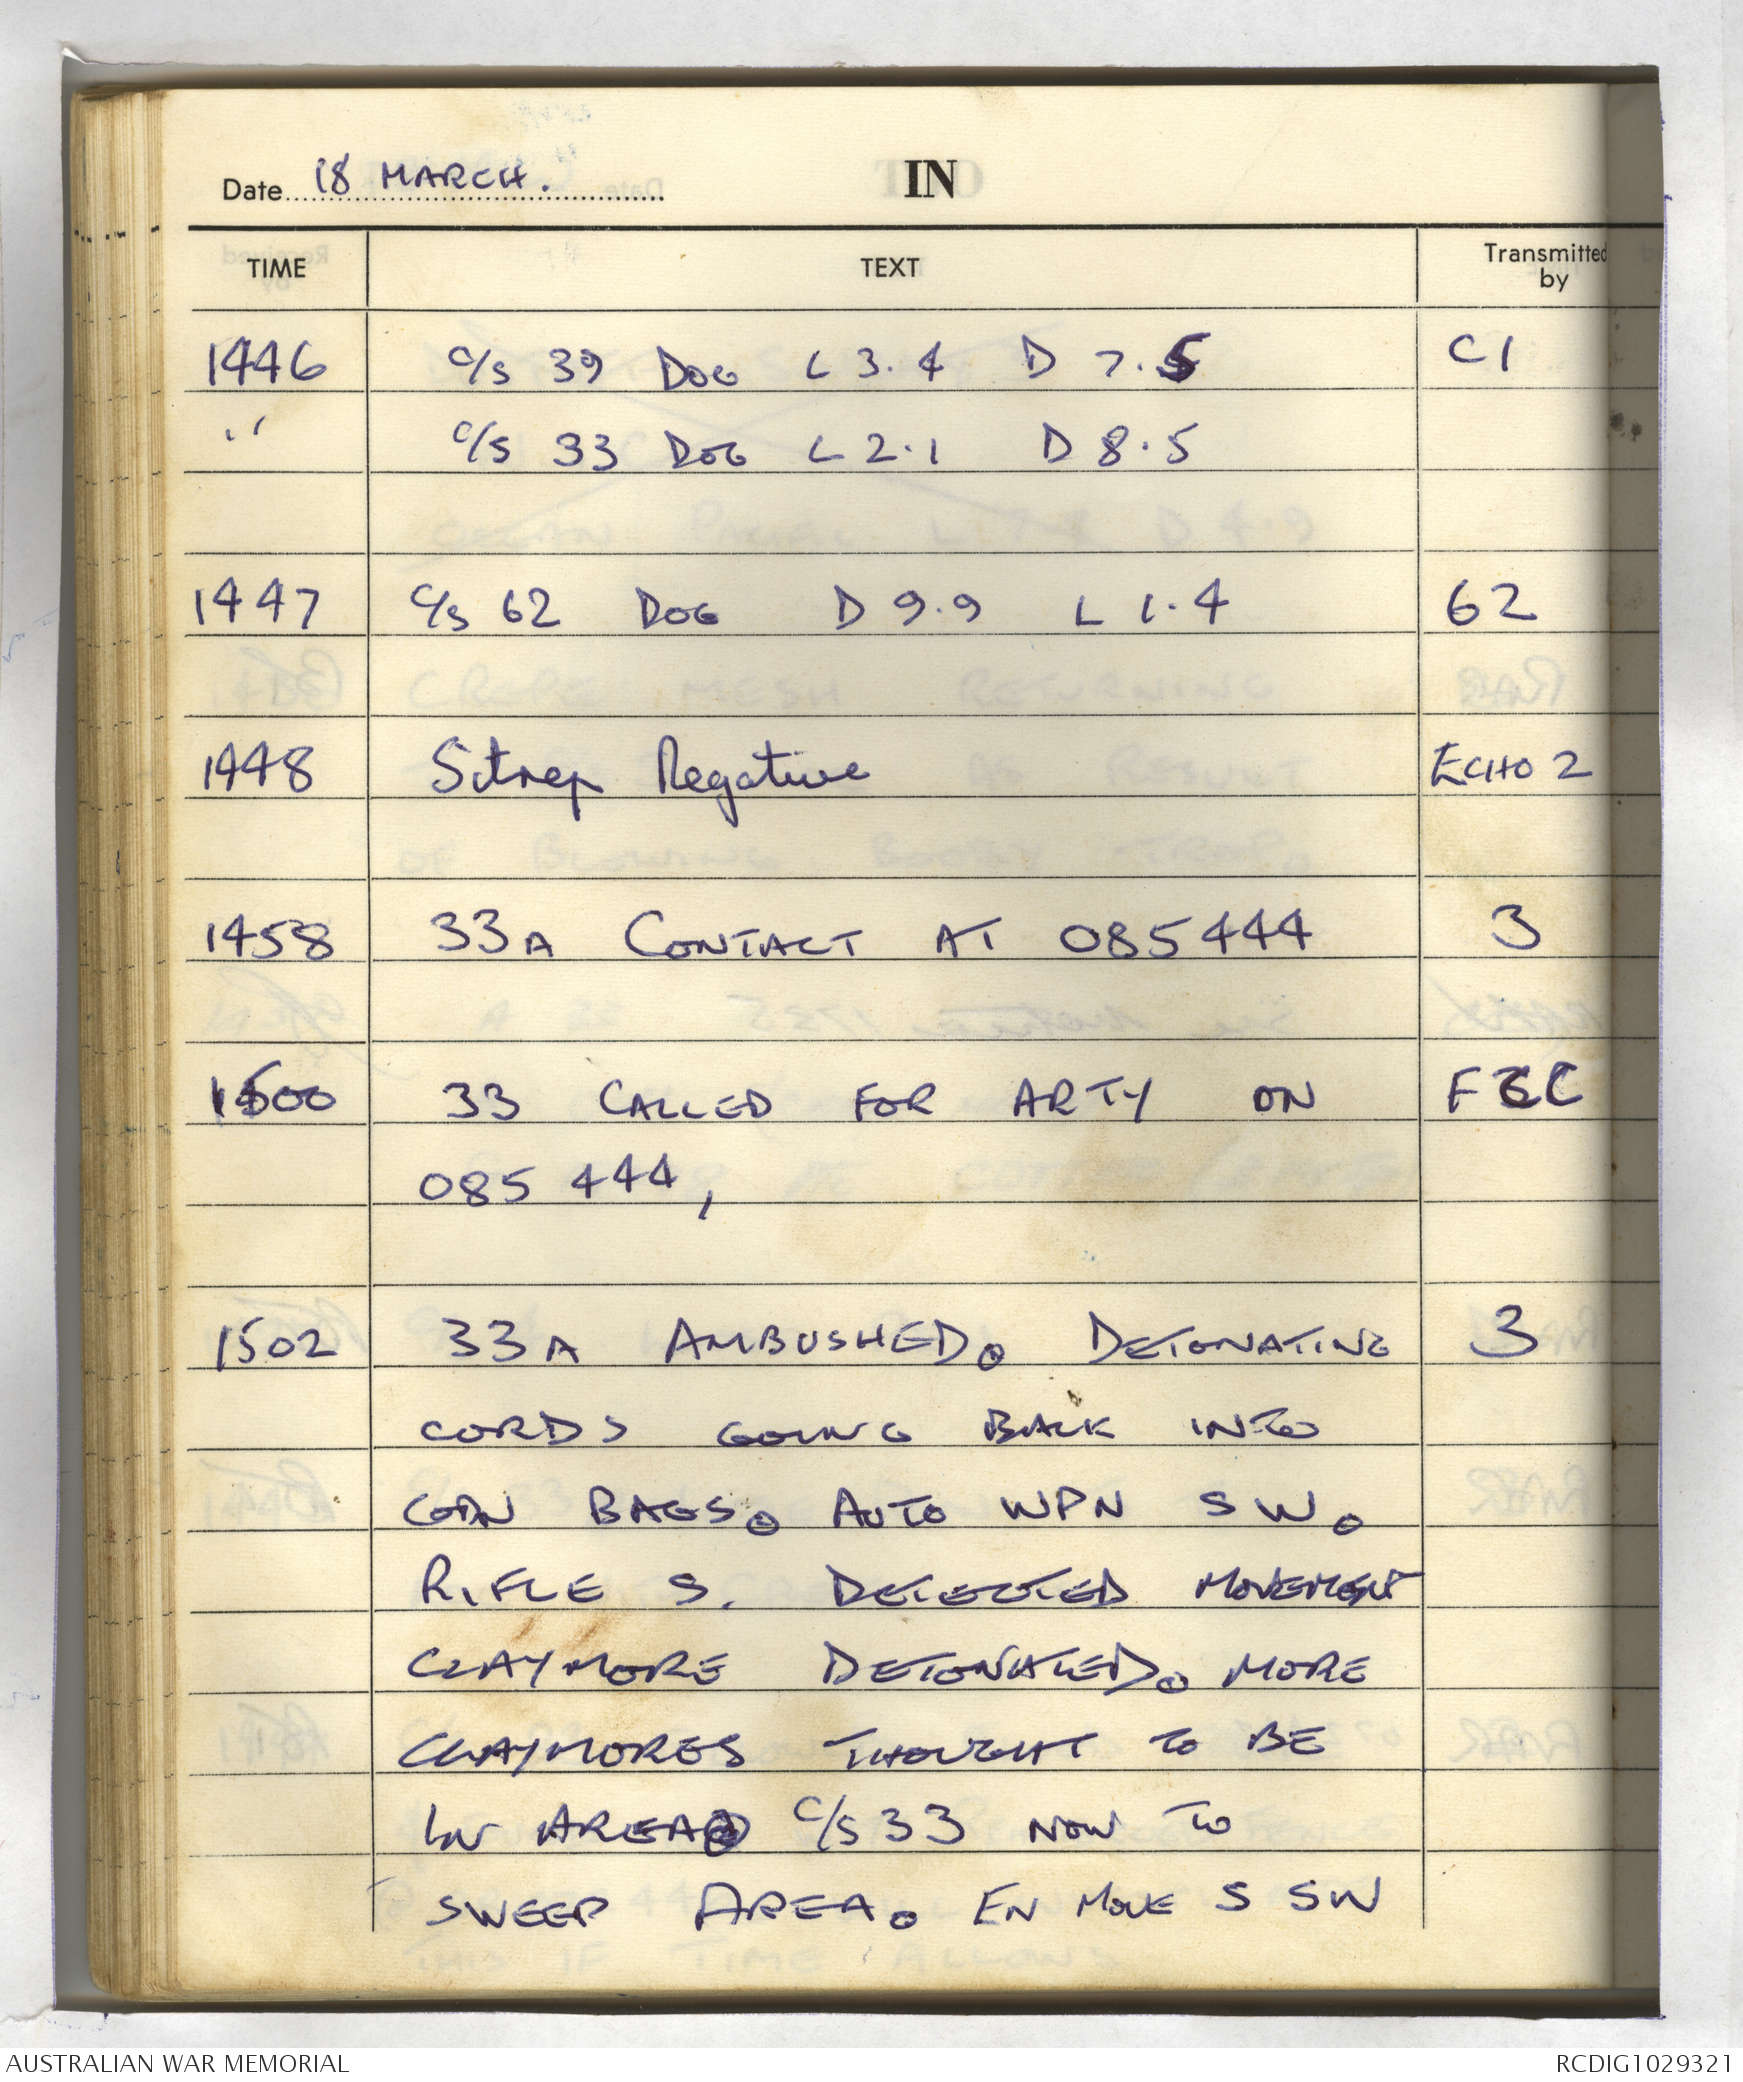 Date 18 MARCH. IN
TIME TEXT Transmitted by
1446 C/S 39 DOG L 3.4 D 7.5 C1
" C/S 33 DOG L 2.1 D 8.5
1447 C/S 62 DOG D 9.9 L 1.4 62
1448 Sitrep Negative ECHO 2
1458 33A CONTACT AT 085444 3
1500 33 CALLED FOR ARTY ON
085 444,
1502 33A AMBUSHED. DETONATING 3
CORDS GOING BACK INTO
BAGS. AUTO WPN SW.
RIFLE S. DETECTED MOVEMENT
CLAYMORE DETONATED. MORE
CLAYMORES THOUGHT TO BE
IN AREA. C/S 33 NOW TO
SWEEP AREA. EN MOVE S SW
AUSTRALIAN WAR MEMORIAL RCDIG1029321